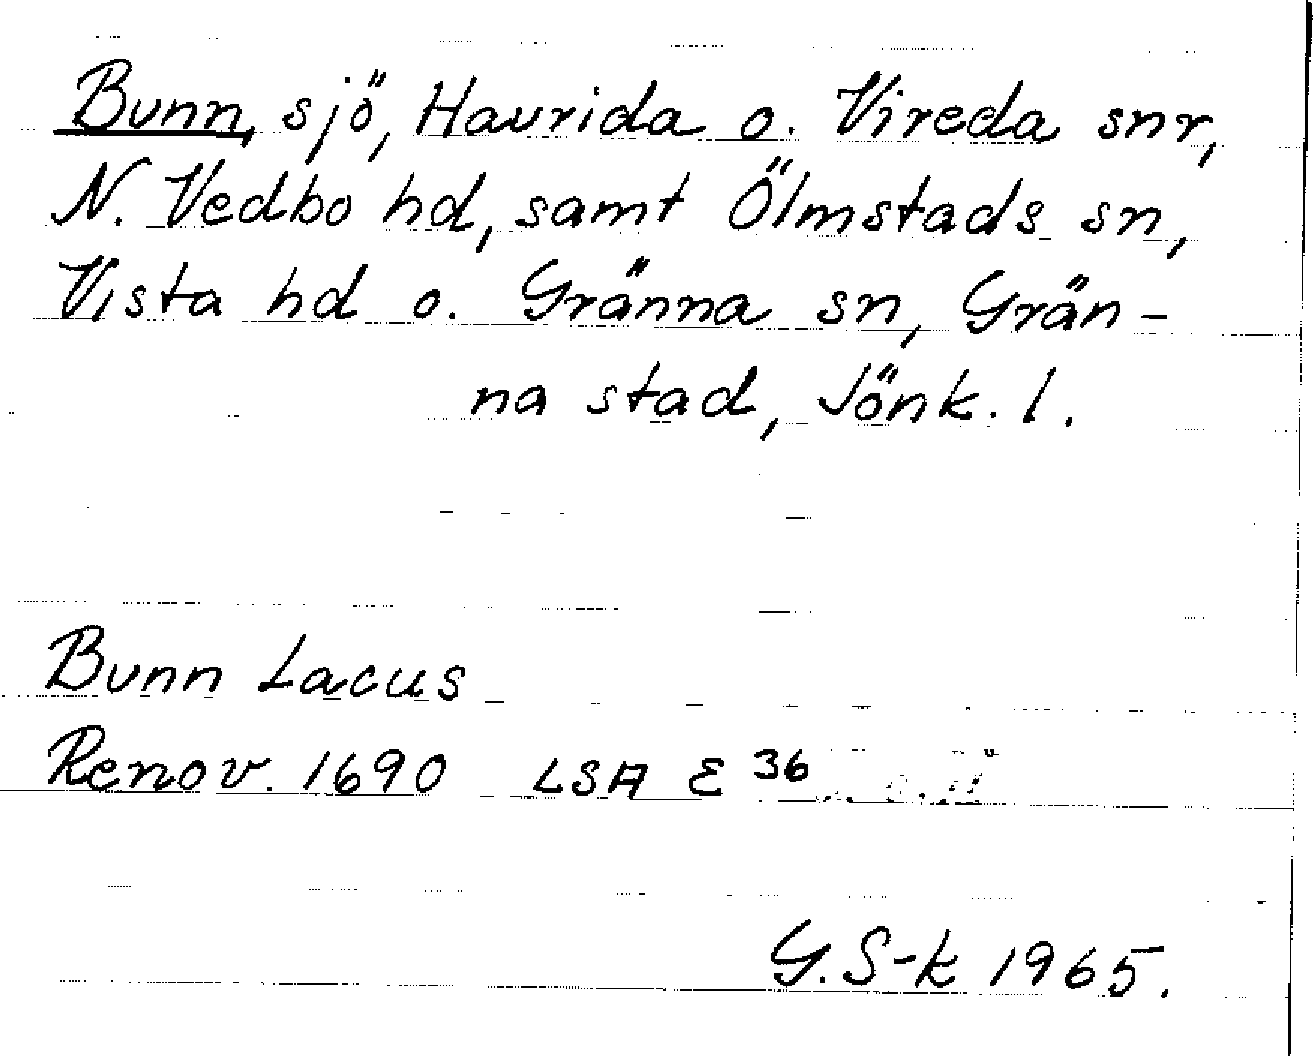 Bunn, sjö, Haurida o. Vireda snr,
N. Vedbo hd, samt Ölmstads sn,
Vista hd o. Gränna sn, Grän-
na stad, Jönk. l.
Bunn Lacus
Renov. 1690 LSA E 36
G. S-k 1965.